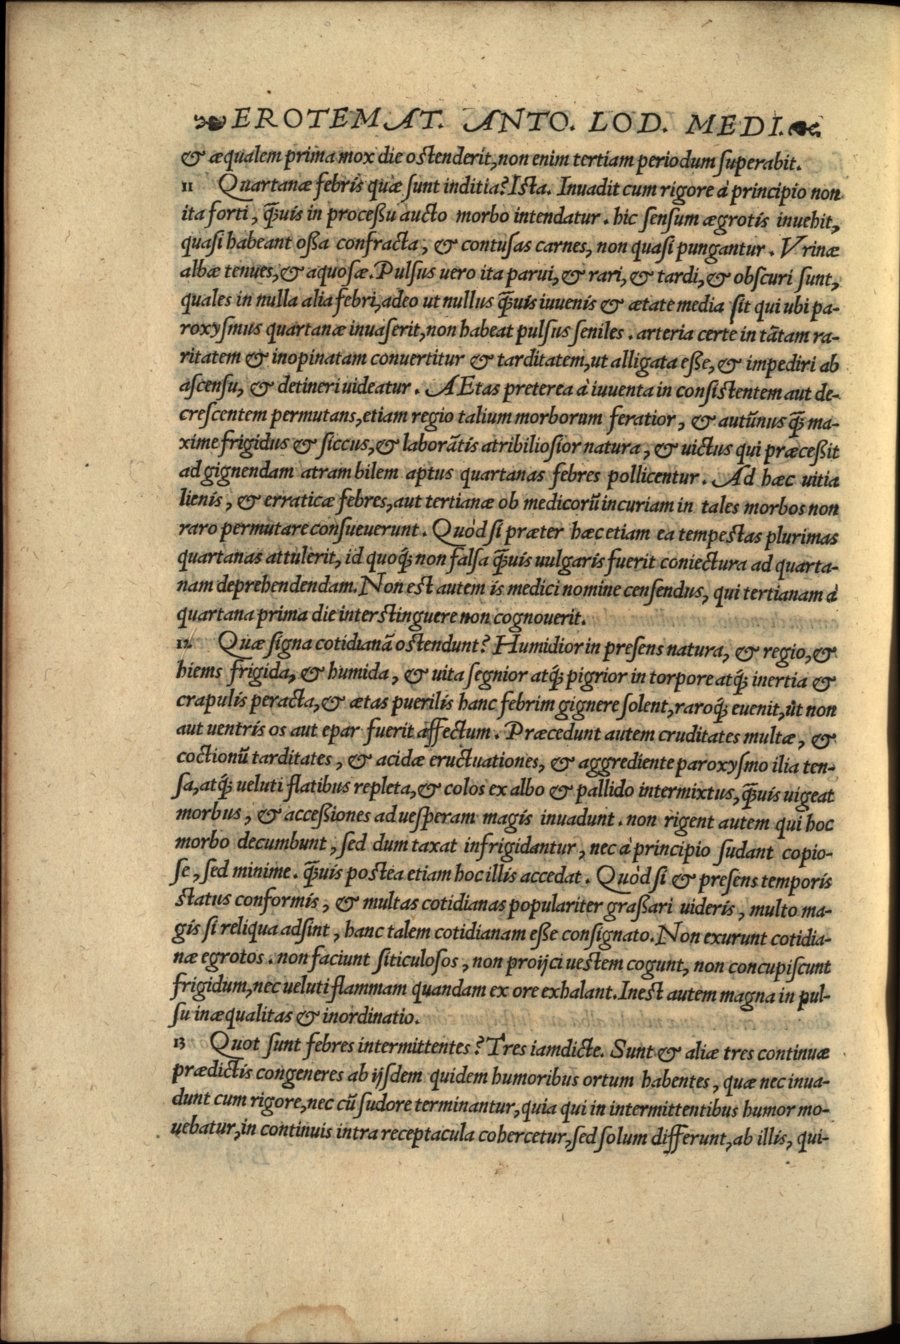 ❧EROTEMAT. ANTO. LOD. MEDI.☙
& æqualem prima mox die ostenderit, non enim tertiam periodum superabit.
11 Quartanæ febris quæ sunt inditia? Ista. Inuadit cum rigore à principio non
ita forti, q̃uis in processu aucto morbo intendatur. hic sensum ægrotis inuehit,
quasi habeant ossa confracta, & contusas carnes, non quasi pungantur. Vrinæ
albæ tenues, & aquosæ. Pulsus uero ita parui, & rari, & tardi, & obscuri sunt,
quales in nulla alia febri, adeo ut nullus q̃uis iuuenis & ætate media sit qui ubi pa-
roxysmus quartanæ inuaserit, non habeat pulsus seniles. arteria certe in tãtam ra-
ritatem & inopinatam conuertitur & tarditatem, ut alligata esse, & impediri ab
ascensu, & detineri uideatur. AEtas preterea à iuuenta in consistentem aut de-
crescentem permutans, etiam regio talium morborum feratior, & autũnus q̃ ma-
xime frigidus & siccus, & laborãtis atribiliosior natura, & uictus qui præcessit
ad gignendam atram bilem aptus quartanas febres pollicentur. Ad hæc uitia
lienis, & erraticæ febres, aut tertianæ ob medicorũ incuriam in tales morbos non
raro permutare consueuerunt. Quòd si præter hæc etiam ea tempestas plurimas
quartanas attulerit, id quoq̃ non falsa q̃uis uulgaris fuerit coniectura ad quarta-
nam deprehendendam. Non est autem is medici nomine censendus, qui tertianam à
quartana prima die interstinguere non cognouerit.
12 Quæ signa cotidianã ostendunt? Humidior in presens natura, & regio, &
hiems frigida, & humida, & uita segnior atq̃ pigrior in torpore atq̃ inertia &
crapulis peracta, & ætas puerilis hanc febrim gignere solent, raroq̃ euenit, ùt non
aut uentris os aut epar fuerit affectum. Præcedunt autem cruditates multæ, &
coctionũ tarditates, & acidæ eructuationes, & aggrediente paroxysmo ilia ten-
sa, atq̃ ueluti flatibus repleta, & colos ex albo & pallido intermixtus, q̃uis uigeat
morbus, & accessiones ad uesperam magis inuadunt. non rigent autem qui hoc
morbo decumbunt, sed dum taxat infrigidantur, nec à principio sudant copio-
se, sed minime. q̃uis postea etiam hoc illis accedat. Quòd si & presens temporis
status conformis, & multas cotidianas populariter grassari uideris, multo ma-
gis si reliqua adsint, hanc talem cotidianam esse consignato. Non exurunt cotidia-
næ egrotos. non faciunt siticulosos, non proijci uestem cogunt, non concupiscunt
frigidum, nec ueluti flammam quandam ex ore exhalant. Inest autem magna in pul-
su inæqualitas & inordinatio.
13 Quot sunt febres intermittentes? Tres iamdicte. Sunt & aliæ tres continuæ
prædictis congeneres ab ijsdem quidem humoribus ortum habentes, quæ nec inua-
dunt cum rigore, nec cũ sudore terminantur, quia qui in intermittentibus humor mo-
uebatur, in continuis intra receptacula cohercetur, sed solum differunt, ab illis, qui-